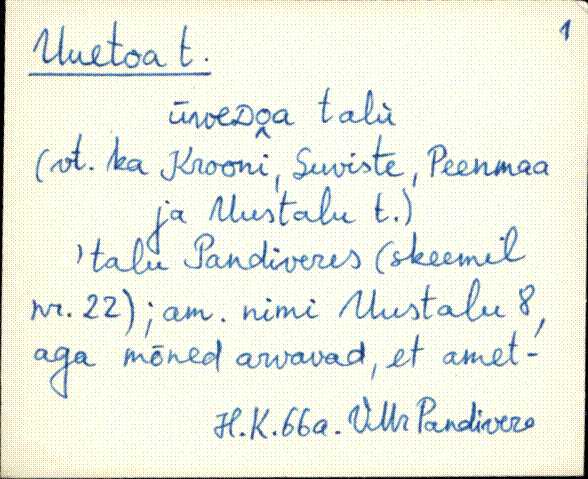 1
Uuetoa t.
ūveDo̭a talù
(vt. ka Krooni, Suviste, Peenmaa
ja Uustalu t.)
'talu Pandiveres (skeemil
nr. 22); am. nimi Uustalu 8,
aga mõned arvavad, et amet-
H.K. 66a. VMr Pandivere